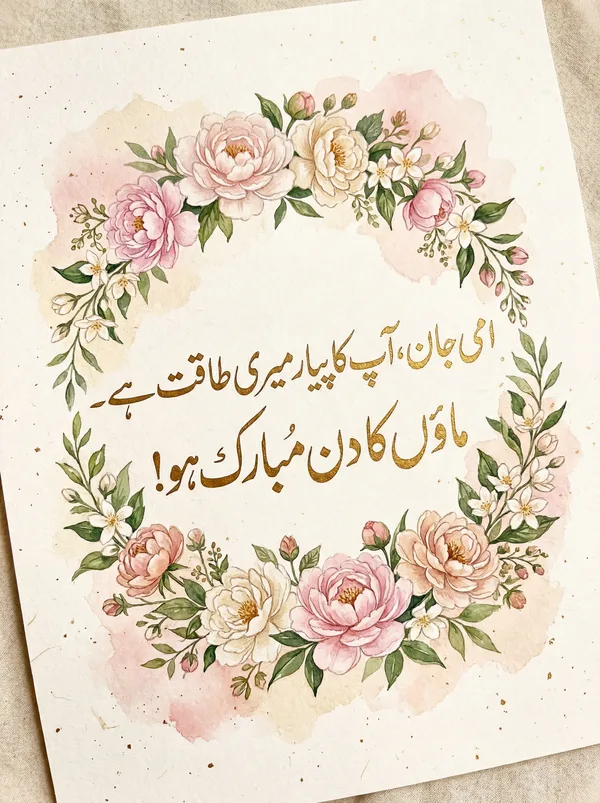 امی جان، آپ کا پیار میری طاقت ہے۔
ماؤں کا دن مُبارک ہو!